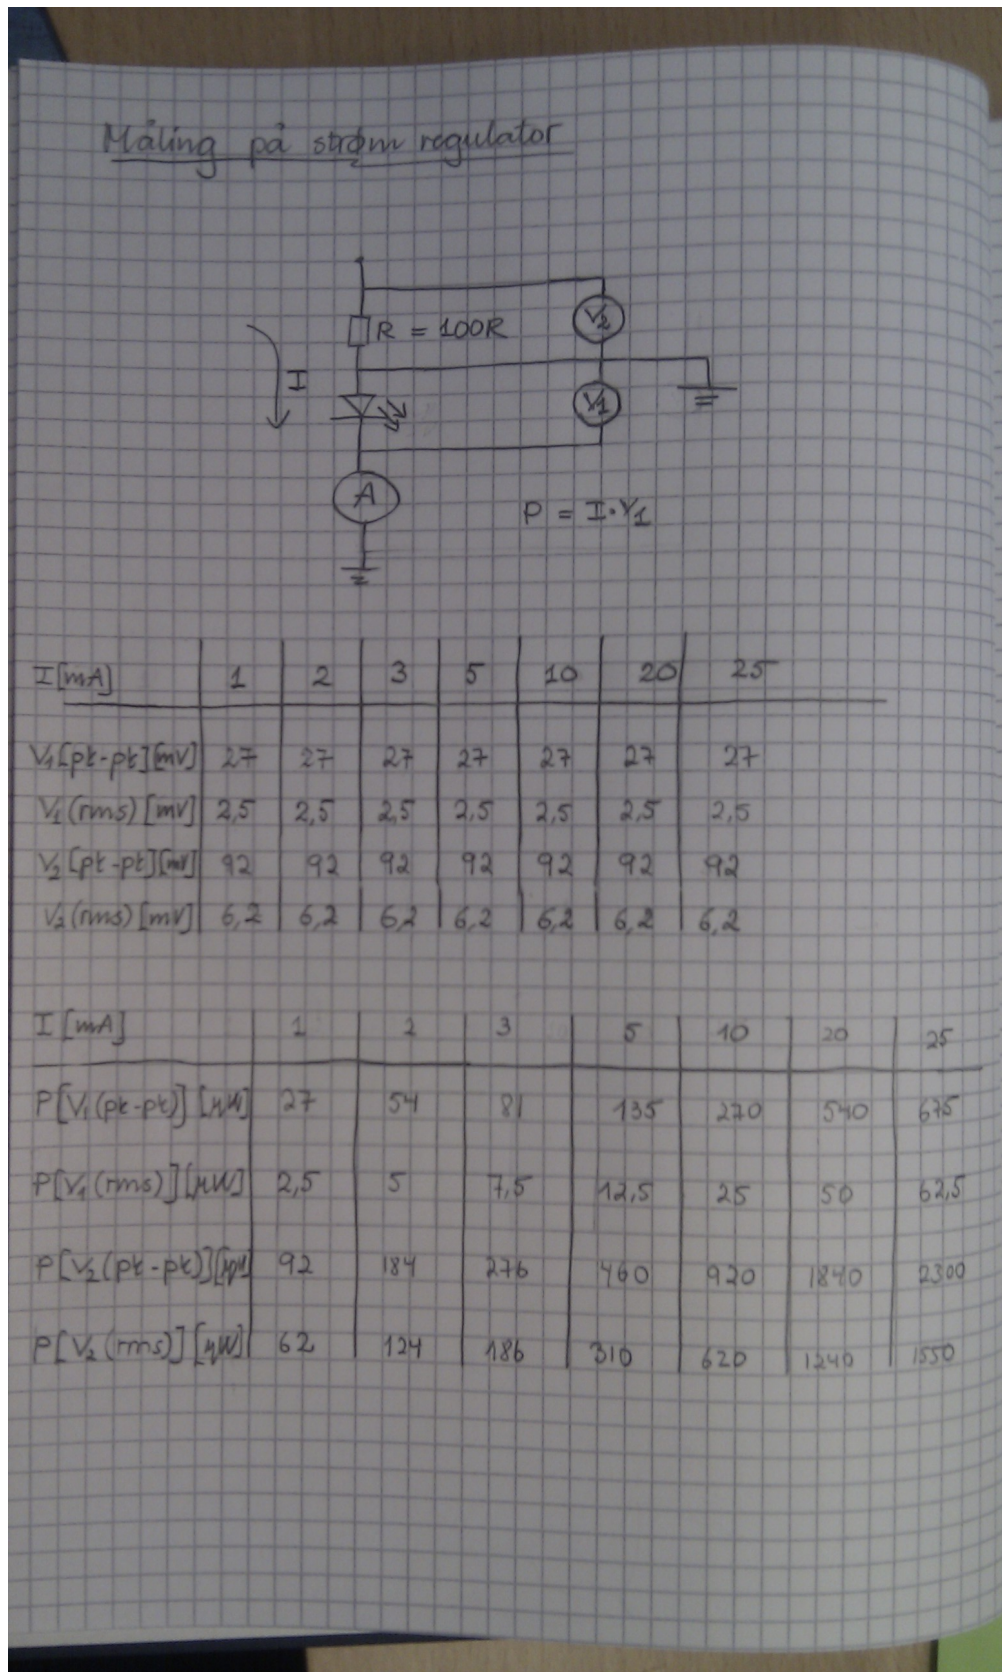 Måling på strøm regulator
V2
R = 100R
I
V1
A
P = I·V1
I[mA] 1 2 3 5 10 20 25
V1[pk-pk][mV] 27 27 27 27 27 27 27
V1(rms)[mV] 2,5 2,5 2,5 2,5 2,5 2,5 2,5
V2[pk-pk][mV] 92 92 92 92 92 92 92
V2(rms)[mV] 6,2 6,2 6,2 6,2 6,2 6,2 6,2
I [mA] 1 2 3 5 10 20 25
P[V1(pk-pk)] [µW] 27 54 81 135 270 540 675
P[V1(rms)][µW] 2,5 5 7,5 12,5 25 50 62,5
P[V2(pk-pk)][µW] 92 184 276 460 920 1840 2300
P[V2(rms)][µW] 62 124 186 310 620 1240 1550